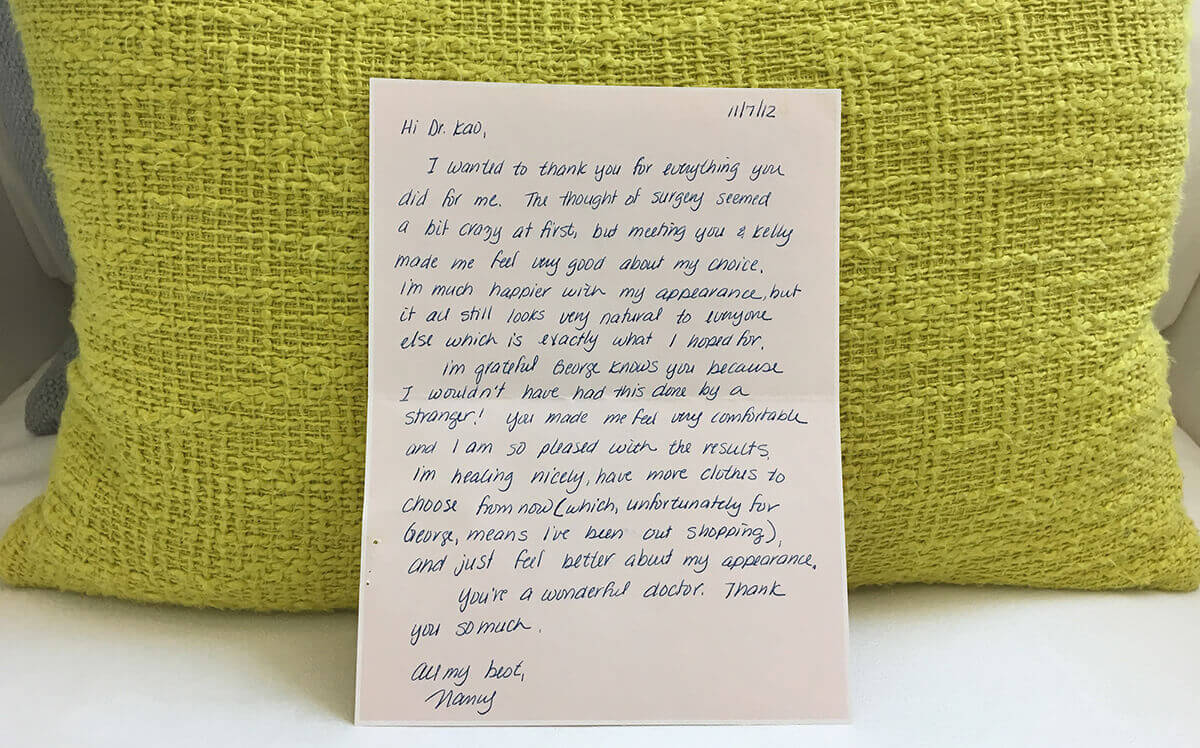 11/7/12
Hi Dr. Kao,
I wanted to thank you for everything you
did for me. The thought of surgery seemed
a bit crazy at first, but meeting you & Kelly
made me feel very good about my choice.
I'm much happier with my appearance, but
it all still looks very natural to everyone
else which is exactly what I hoped for.
I'm grateful George knows you because
I wouldn't have had this done by a
stranger! You made me feel very comfortable
and I am so pleased with the results.
I'm healing nicely, have more clothes to
choose from now (which, unfortunately for
George, means I've been out shopping),
and just feel better about my appearance.
You're a wonderful doctor. Thank
you so much.
All my best,
Nancy